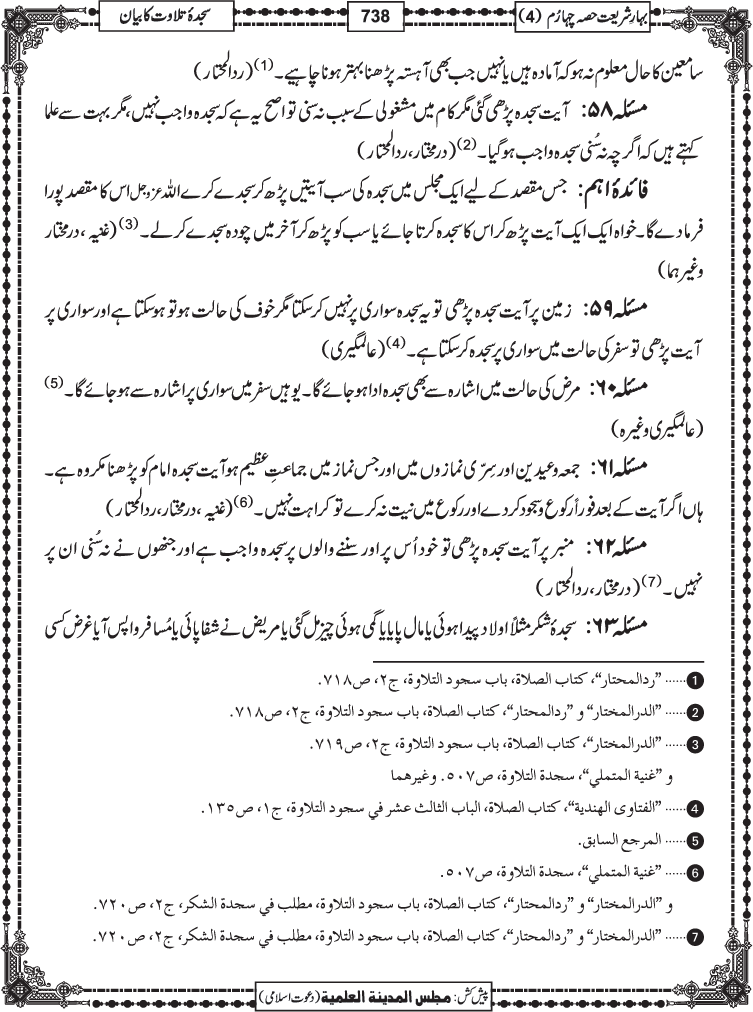 بہارِشریعت حصہ چہارم (4)
738
سجدۂ تلاوت کا بیان
سامعین کا حال معلوم نہ ہو کہ آمادہ ہیں یا نہیں جب بھی آہستہ پڑھنا بہتر ہونا چاہیے۔ (1) (ردالمحتار)
مسئلہ ۵۸: آیت سجدہ پڑھی گئی مگر کام میں مشغولی کے سبب نہ سنی تو اصح یہ ہے کہ سجدہ واجب نہیں، مگر بہت سے علما
کہتے ہیں کہ اگرچہ نہ سُنی سجدہ واجب ہوگیا۔ (2) (درمختار، ردالمحتار)
فائدۂ اہم: جس مقصد کے لیے ایک مجلس میں سجدہ کی سب آیتیں پڑھ کر سجدے کرے اللہ عزوجل اس کا مقصد پورا
فرما دے گا۔ خواہ ایک ایک آیت پڑھ کر اس کا سجدہ کرتا جائے یا سب کو پڑھ کر آخر میں چودہ سجدے کر لے۔ (3) (غنیہ، درمختار
وغیرہما)
مسئلہ ۵۹: زمین پر آیت سجدہ پڑھی تو یہ سجدہ سواری پر نہیں کرسکتا مگر خوف کی حالت ہو تو ہوسکتا ہے اور سواری پر
آیت پڑھی تو سفر کی حالت میں سواری پر سجدہ کرسکتا ہے۔ (4) (عالمگیری)
مسئلہ ۶۰: مرض کی حالت میں اشارہ سے بھی سجدہ ادا ہو جائے گا۔ یوہیں سفر میں سواری پر اشارہ سے ہو جائے گا۔ (5)
(عالمگیری وغیرہ)
مسئلہ ۶۱: جمعہ و عیدین اور سِرّی نمازوں میں اور جس نماز میں جماعتِ عظیم ہو آیت سجدہ امام کو پڑھنا مکروہ ہے۔
ہاں اگر آیت کے بعد فوراً رکوع و سجود کردے اور رکوع میں نیت نہ کرے تو کراہت نہیں۔ (6) (غنیہ، درمختار، ردالمحتار)
مسئلہ ۶۲: منبر پر آیت سجدہ پڑھی تو خود اُس پر اور سننے والوں پر سجدہ واجب ہے اور جنھوں نے نہ سُنی ان پر
نہیں۔ (7) (درمختار، ردالمحتار)
مسئلہ ۶۳: سجدۂ شکر مثلاً اولاد پیدا ہوئی یا مال پایا یا گمی ہوئی چیز مل گئی یا مریض نے شفا پائی یا مُسافر واپس آیا غرض کسی
1 ...... "ردالمحتار"، کتاب الصلاة، باب سجود التلاوة، ج۲، ص۷۱۸.
2 ...... "الدرالمختار" و "ردالمحتار"، کتاب الصلاة، باب سجود التلاوة، ج۲، ص۷۱۸.
3 ...... "الدرالمختار"، کتاب الصلاة، باب سجود التلاوة، ج۲، ص۷۱۹.
و "غنیة المتملي"، سجدة التلاوة، ص۵۰۷. وغیرهما
4 ...... "الفتاوی الهندیة"، کتاب الصلاة، الباب الثالث عشر في سجود التلاوة، ج۱، ص۱۳۵.
5 ...... المرجع السابق.
6 ...... "غنیة المتملي"، سجدة التلاوة، ص۵۰۷.
و "الدرالمختار" و "ردالمحتار"، کتاب الصلاة، باب سجود التلاوة، مطلب في سجدة الشکر، ج۲، ص۷۲۰.
7 ...... "الدرالمختار" و "ردالمحتار"، کتاب الصلاة، باب سجود التلاوة، مطلب في سجدة الشکر، ج۲، ص۷۲۰.
پیش کش: مجلس المدینة العلمیة (دعوت اسلامی)